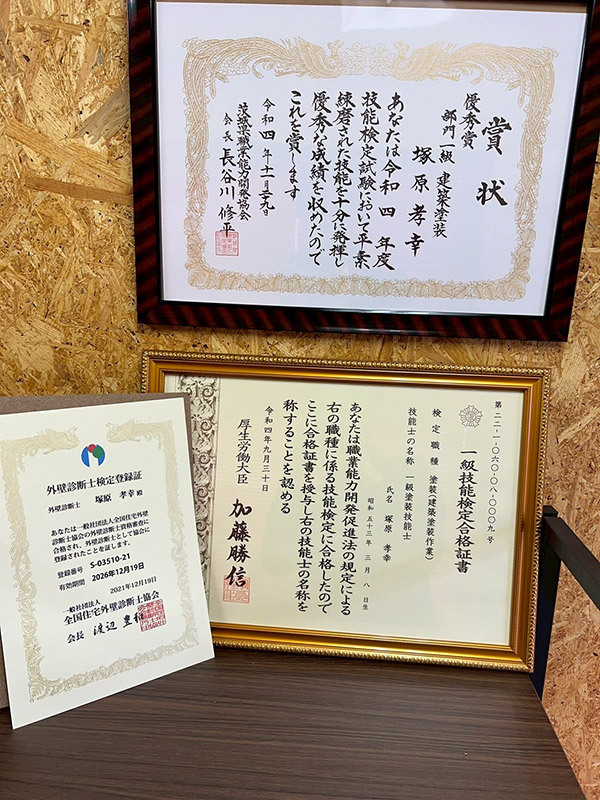 賞状
優秀賞
部門 一級 建築塗装
塚原孝幸
あなたは令和四年度
技能検定試験において平素
練磨された技能を十分に発揮し
優秀な成績を収めたので
これを賞します
令和四年十一月
茨城県職業能力開発協会
会長 長谷川修平
第二二-一-〇六〇-〇八-〇〇〇九号
一級技能検定合格証書
検定職種 塗装(建築塗装作業)
技能士の名称 一級塗装技能士
氏名 塚原 孝幸
昭和五十三年三月八日生
あなたは職業能力開発促進法の規定による
右の職種に係る技能検定に合格したので
ここに合格証書を授与し右の技能士の名称を
称することを認める
令和四年九月三十日
厚生労働大臣
加藤勝信
外壁診断士検定登録証
外壁診断士 塚原 孝幸 殿
あなたは一般社団法人全国住宅外壁
診断士協会の外壁診断士資格審査に
合格され、外壁診断士として協会に
登録されたことを証します。
登録番号 S-03510-21
有効期間 2026年12月19日
2021年12月19日
一般社団法人
全国住宅外壁診断士協会
会長 渡辺豊